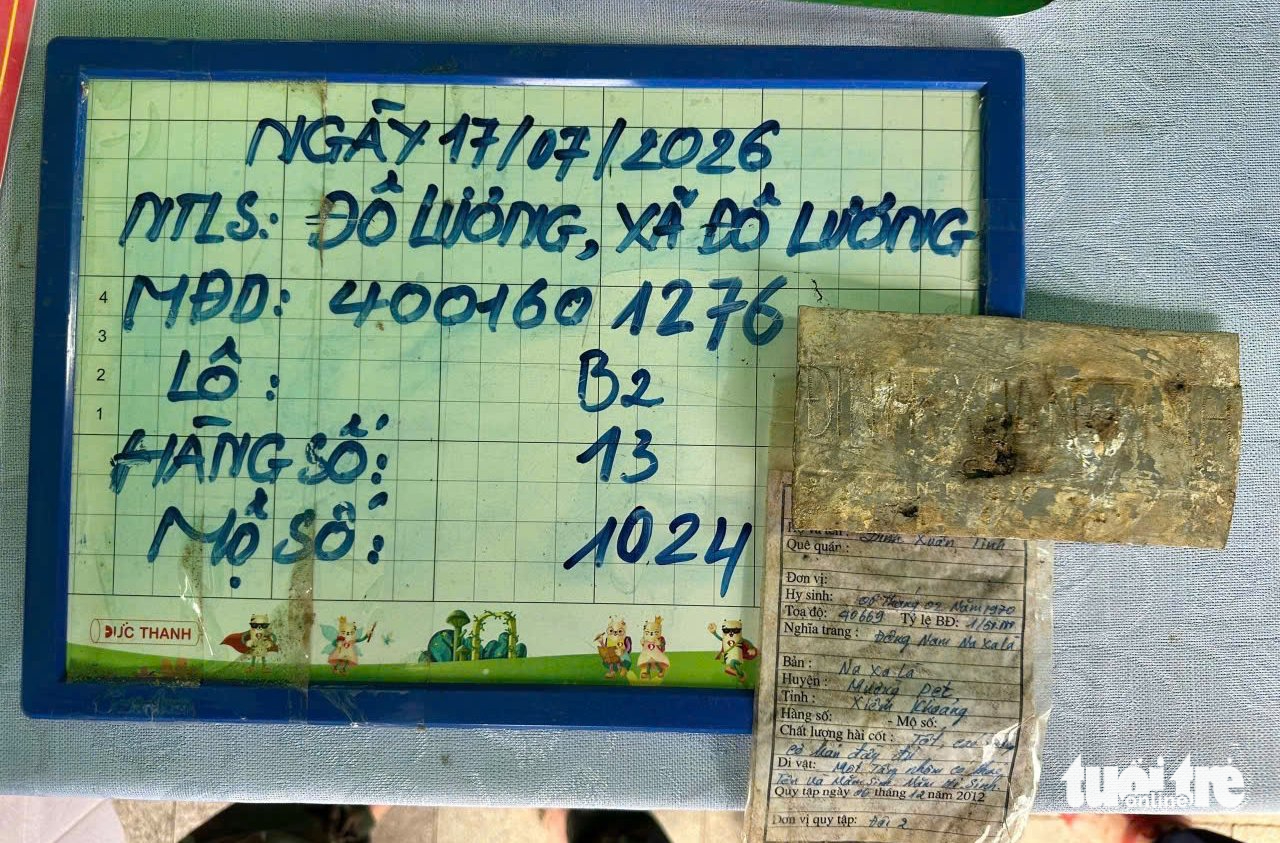 NGÀY 17/07/2026
NTLS: ĐÔ LƯƠNG, XÃ ĐÔ LƯƠNG
MĐD: 400160 1276
LÔ : B2
HÀNG SỐ: 13
MỘ SỐ: 1024
4
3
2
1
ĐỨC THANH
Đinh Xuân Tình
Quê quán :
Đơn vị:
Hy sinh: 08 tháng 02 Năm 1970
Tọa độ: 40669 Tỷ lệ BĐ:
Nghĩa trang : Đông Nam Na Xa Lá
Bản : Na Xa Lá
Huyện : Mường Pẹt
Tỉnh : Xiêm Khoảng
Hàng số: - Mộ số:
Chất lượng hài cốt : Tốt,
đầy đủ
Di vật: Một Tấm nhôm có
Tên và Năm Sinh, Năm Hi Sinh
Quy tập ngày 06 tháng 12 năm 2012
Đơn vị quy tập: Đội 2
tuổi trẻ
online